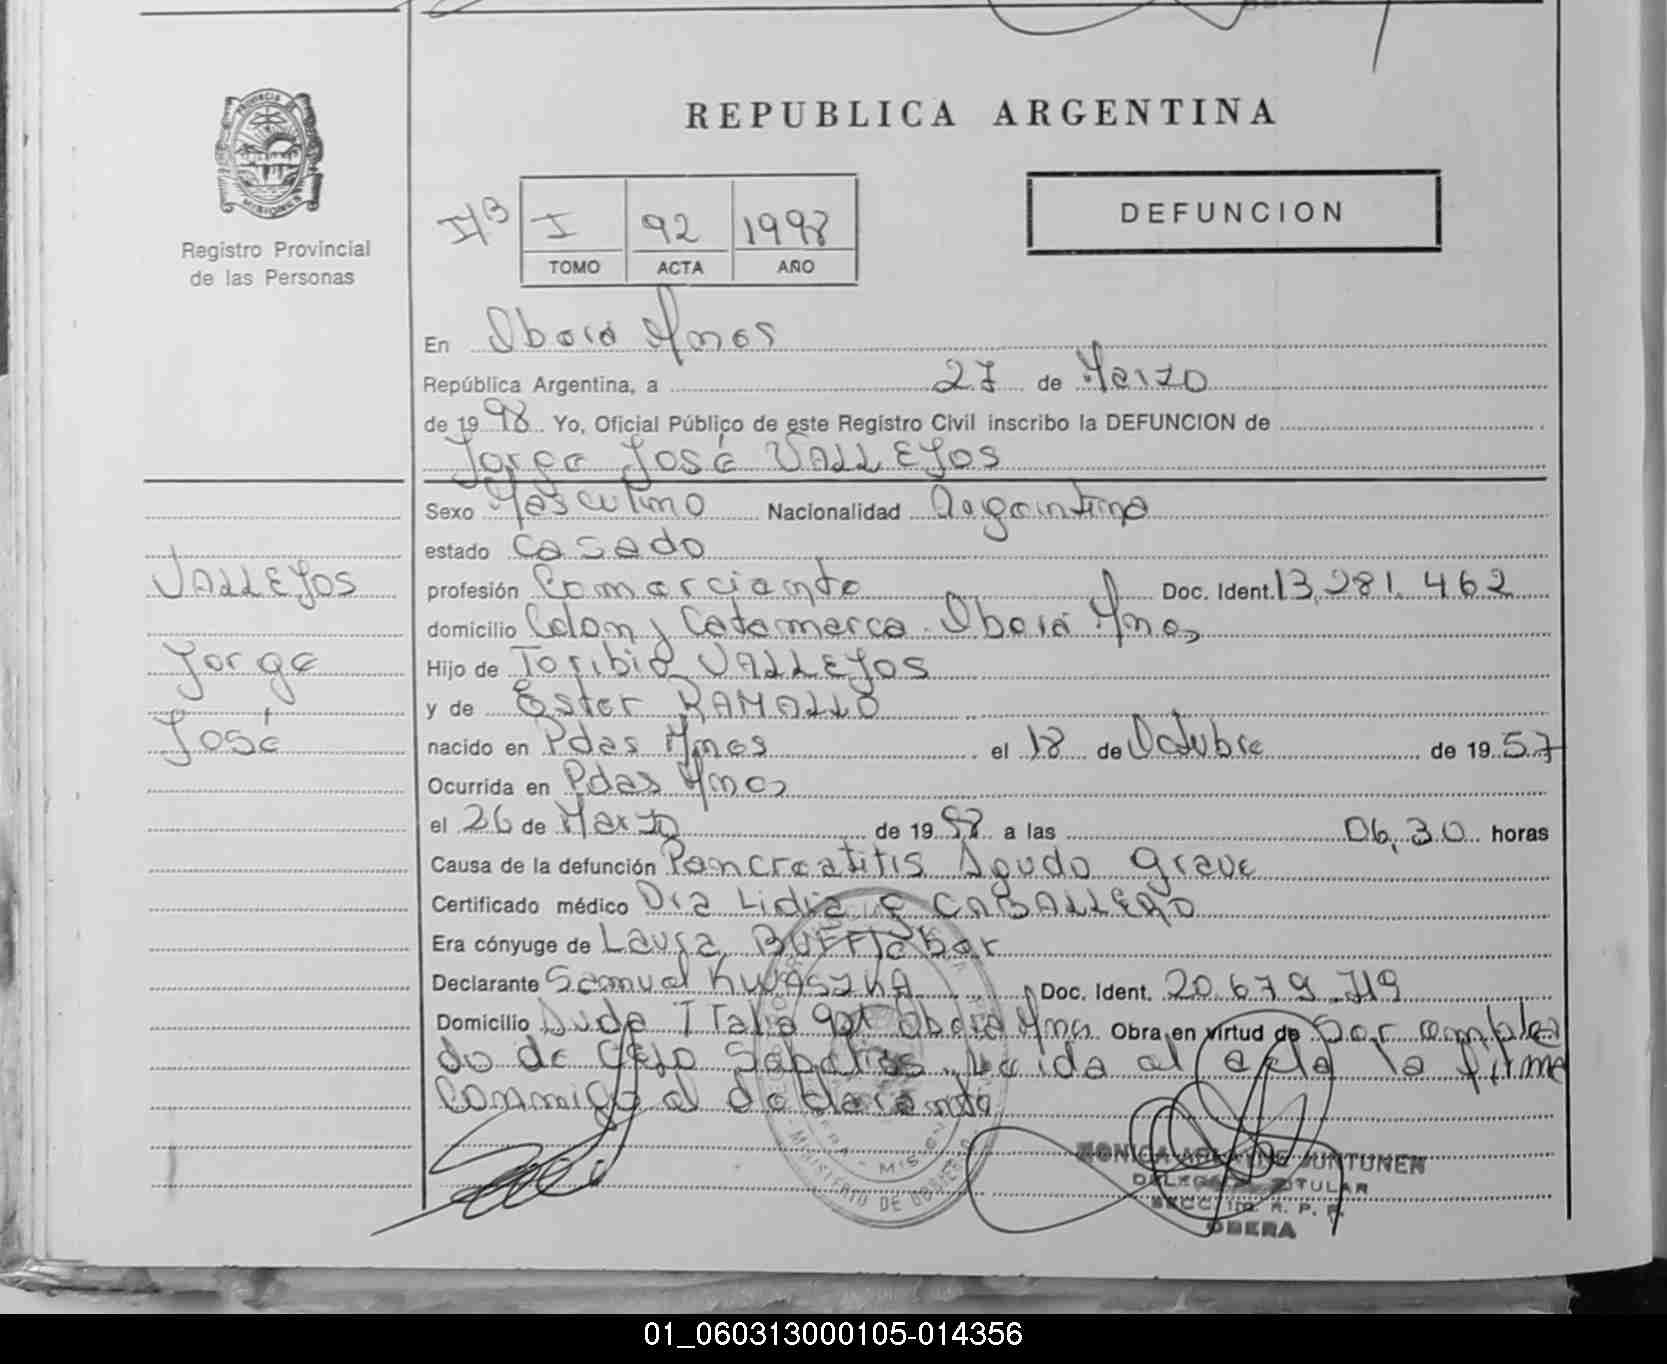 REPUBLICA ARGENTINA
PROVINCIA DE
MISIONES
Registro Provincial
de las Personas
I/B I 92 1998
TOMO ACTA AÑO
DEFUNCION
En Oberá Mnes
República Argentina, a 27 de Marzo
de 1998 Yo, Oficial Público de este Registro Civil inscribo la DEFUNCION de
Jorge José VALLEJOS
Sexo Masculino Nacionalidad Argentina
estado Casado
VALLEJOS
profesión Comerciante Doc. Ident. 13,281.462
domicilio Colon y Catamarca Oberá Mnes
Jorge
Hijo de Toribio VALLEJOS
y de Ester RAMALLO
José
nacido en Pdas Mnes el 18 de Octubre de 1957
Ocurrida en Pdas Mnes
el 26 de Marzo de 1998 a las 06,30 horas
Causa de la defunción Pancreatitis Aguda grave
Certificado médico Dra Lidia E CABALLERO
Era cónyuge de Laura
Declarante Samuel Doc. Ident. 20.679.719
Domicilio Avda Italia Oberá Mnes Obra en virtud de Ser emplea
do de Casa Leida el acta la firma
Conmigo el declarante
MISIONES
MINISTERIO DE GOBIERNO
MONICA JUNTUNEN
DELEGADA TITULAR
SECC. R. P. P.
OBERA
01_060313000105-014356